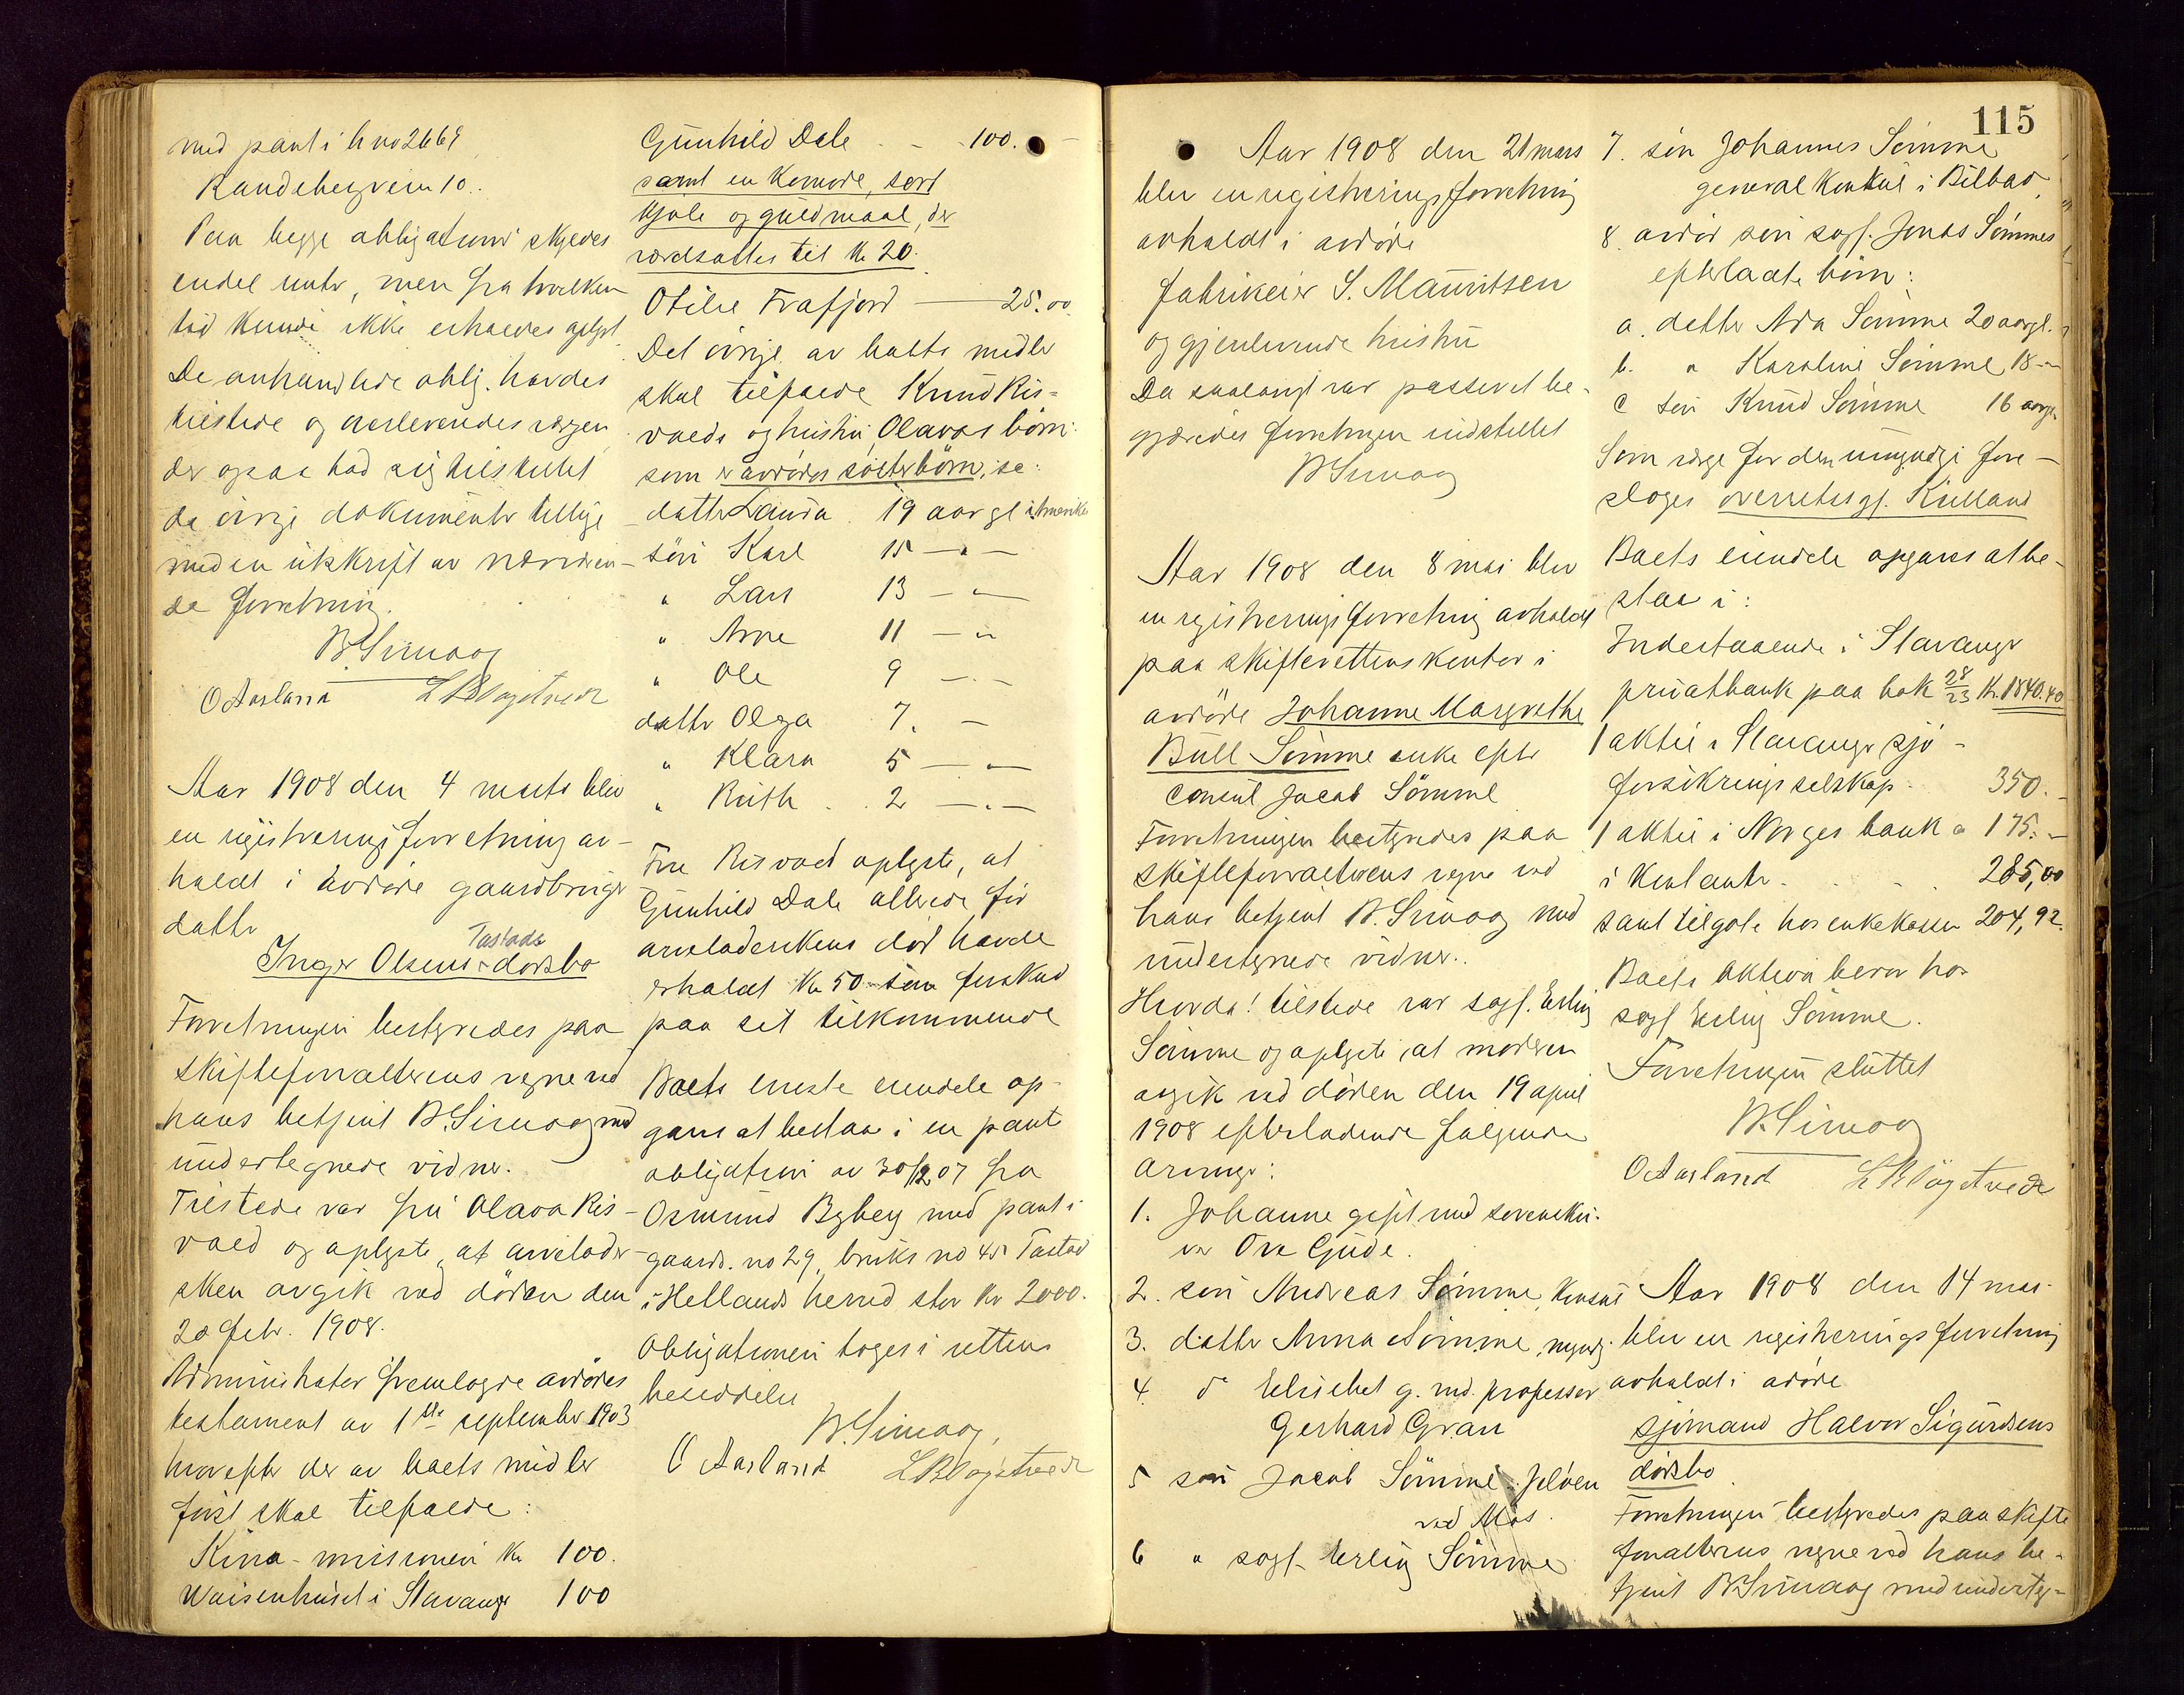 med pant i h no 2669
Randebergveien 10.
Paa begge obligationer skyldes
endel renter, men fra hvilken
tid kunde ikke erholdes oplyst.
De omhandlede oblig. havdes
tilstede og overleveredes vergen
der ogsaa had sig tilstillet
de övrige dokumenter tillige
med en utskrift av nærværen-
de forretning.
B. Simoog
O Aasland L B Vogstvedt
Aar 1908 den 4 marts blev
en registreringsforretning av-
holdt i avdöde gaardbruger
datter
Tastad
Inger Olsens dödsbo
Forretningen bestyredes paa
skifteforvalterens vegne ved
hans betjent B. Simoog med
undertegnede vidner.
Tilstede var fru Olava Ris-
voed og oplyste, at arvelader-
sken avgik ved döden den
20 febr. 1908.
Administrator fremlagde avdödes
testament av 1ste september 1903
hvorefter der av boets midler
först skal tilfalde:
Kina-missionen kr 100.
Waisenhuset i Stavanger 100
Gunhild Dale - - 100. -
samt en komode, sort
kjole og guldmaal, der
værdsattes til kr 20.
Otilie Frafjord — 25.00
Det övrige av boets midler
skal tilfalde Knud Ris-
voeds og hustru Olavas börn
som er avdödes sösterbörn, se:
datter Laura 19 aar gl i Amerika
sön Karl 15 — " —
" Lars 13 — " —
" Arne 11 — "
" Ole 9 — " —
datter Olga 7. —
" Klara 5 — " —
" Ruth . . 2 — " —
Fru Risvoed oplyste, at
Gunhild Dale allerede för
arveladerskens död havde
erholdt kr 50 som forskud
paa sit tilkommende
Boets eneste eiendele op-
gaves at bestaa i en pant
obligation av 30/12 07 fra
Osmund Byberg med pant i
gaards. no 29, bruks no 45 Tastad
i Hetlands herred stor kr 2000.
Obligationen toges i rettens
besiddelse
B. Simoog,
O Aasland L B Vogstvedt
115
Aar 1908 den 21 mars
blev en registreringsforretning
avholdt i avdöde
fabrikeier S. Mauritsen
og gjenlevende hustru
Da saalangt var passeret be-
gjæredes forretningen indstillet
B Simoog
Aar 1908 den 8 mai blev
en registreringsforretning avholdt
paa skifterettens kontor i
avdöde Johanne Margrethe
Bull Sömme enke efter
Consul Jacob Sömme
Forretningen bestyredes paa
skifteforvalterens vegne ved
hans betjent B. Simoog med
undertegnede vidner.
Hvorda! tilstede var sagf. Erling
Sömme og oplyste, at moderen
avgik ved döden den 19 april
1908 efterladende fölgende
arvinger:
1. Johanne gift med
Ove Gude.
2. sön Andreas Sömme, konsul
3. datter Anna Sömme, myndig
4. d Elisebet g. med professor
Gerhard Gran
5 sön Jacob Sömme Jelöen
ved Mos.
6 " sagf. Erling Sömme
7. sön Johannes Sömme
general konsul i Bilbao
8. avdöd sön sagf. Jonas Sömmes
efterladte börn:
a. datter Ada Sömme 20 aargl.
b. " Karoline Sömme 18 —
c sön Knud Sömme 16 aargl.
Som værge for den umyndige fore-
sloges overretssagf. Kielland
Boets eiendele opgaves at be-
staa i:
Indestaaende i Stavanger
privatbank paa bok 28/23 kr. 1840.40
1 aktie i Stavanger sjö-
forsikringsselskap - 350. -
1 aktie i Norges bank a 175. -
i kontanter . . . 285,00
samt tilgode hos enkekassen 204,92.
Boets aktiva beror hos
sagf Erling Sömme.
Forretningen sluttet
B. Simoog
O Aasland L B Vogstvedt
Aar 1908 den 14 mai
blev en registreringsforretning
avholdt i avdöde
sjömand Halvor Sigurdsens
dödsbo
Forretningen bestyredes paa skifte
forvalterens vegne ved hans be-
tjent B. Simoog med underteg-